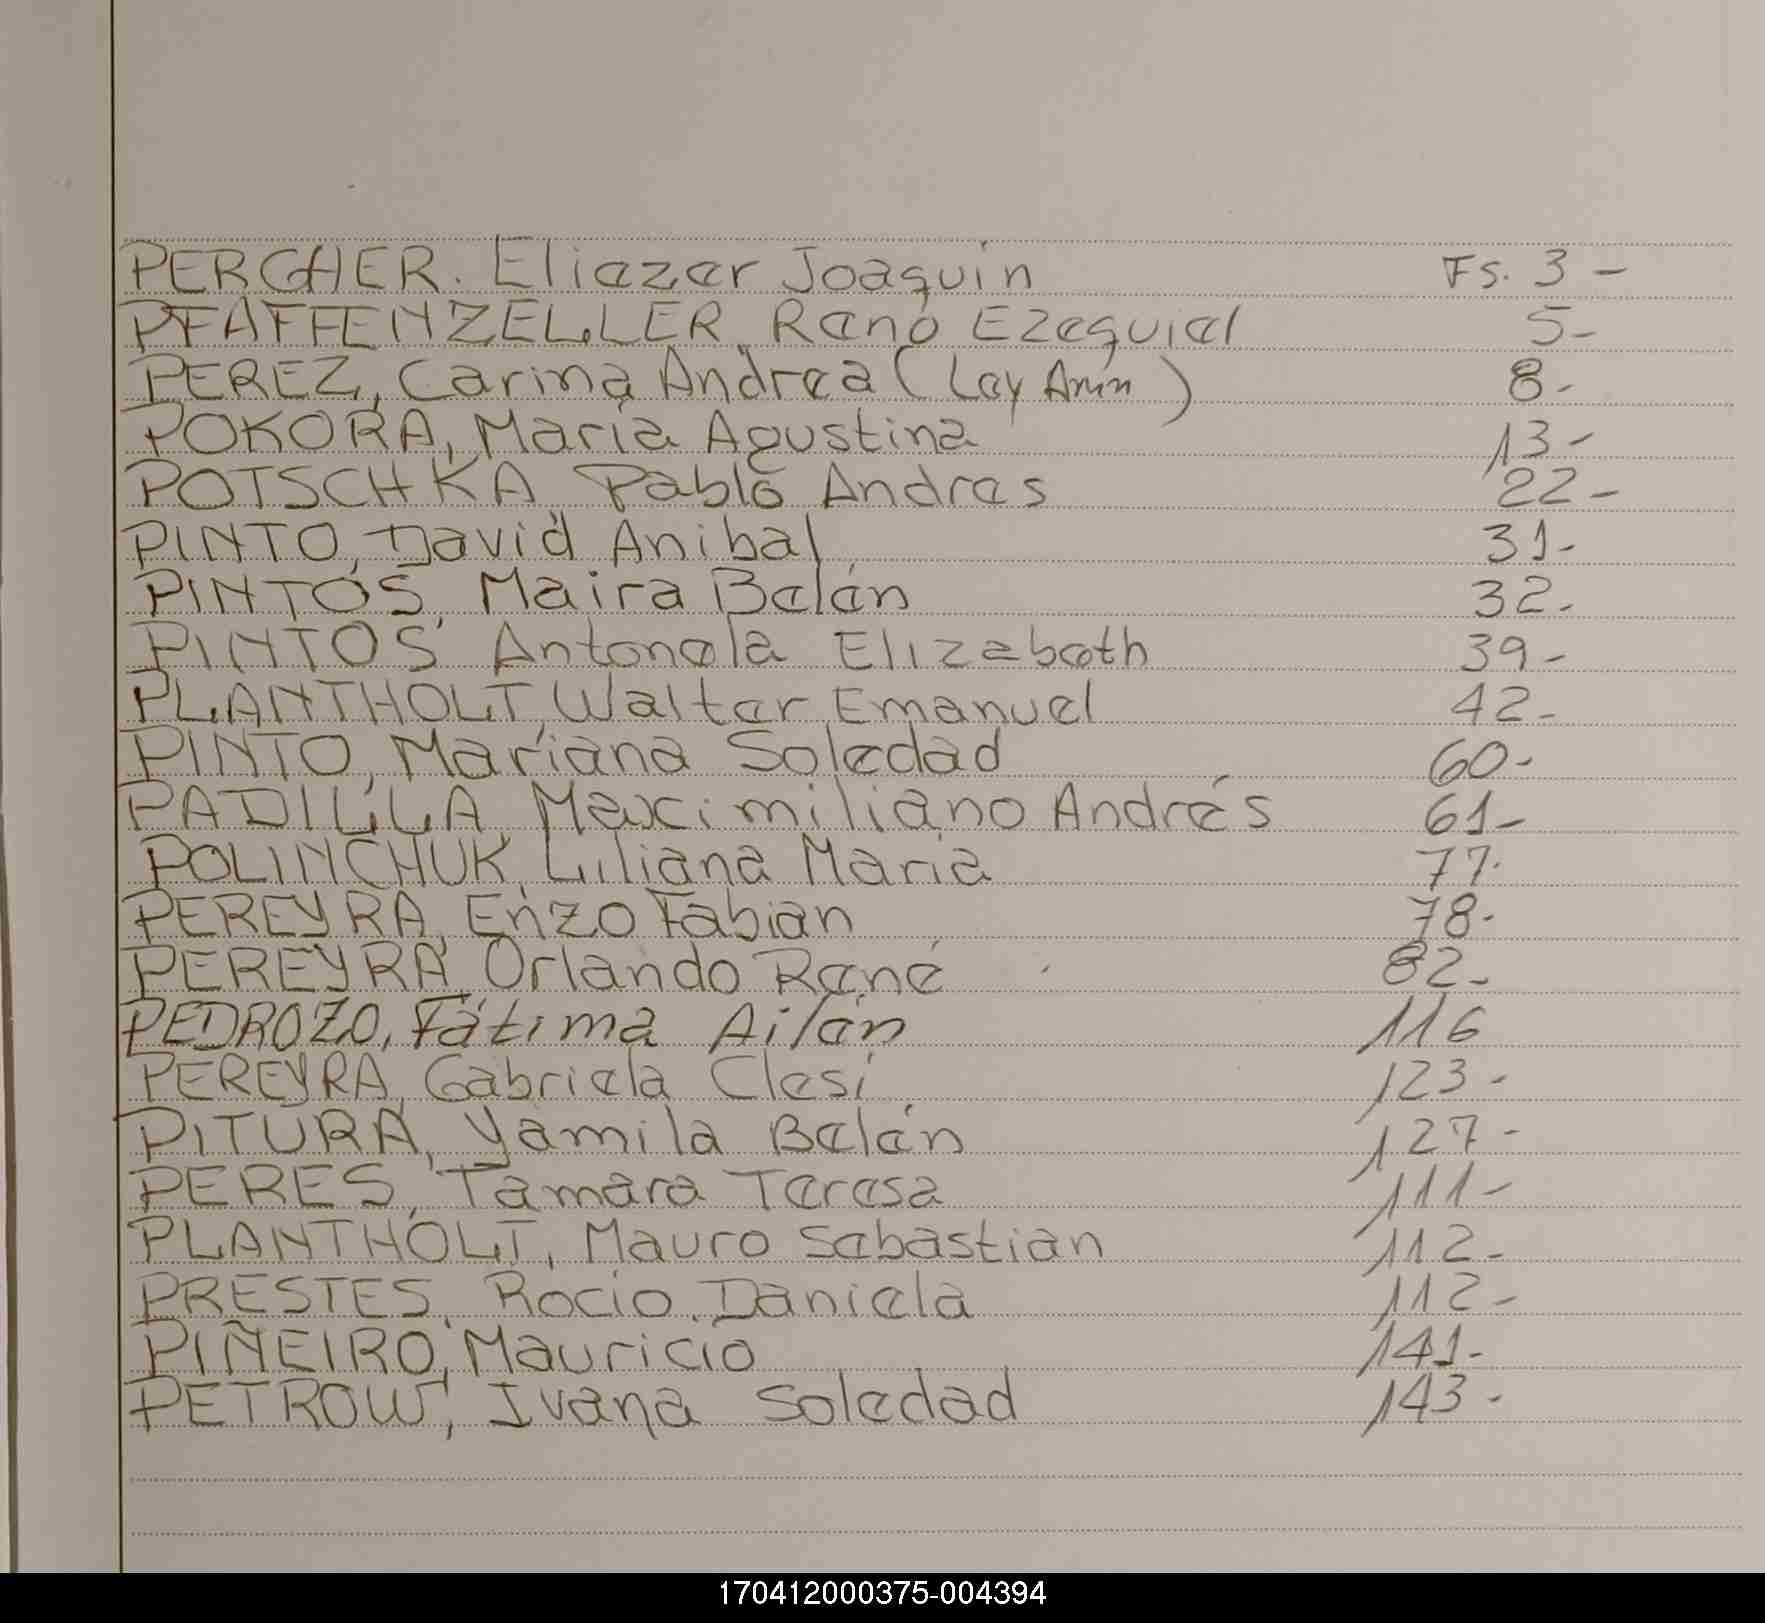 PERGHER. Eliezer Joaquin Fs. 3-
PFAFFENZELLER, René Ezequiel 5-
PEREZ, Carina Andrea (Ley Anín) 8-
POKORA, María Agustina 13-
POTSCHKA Pablo Andres 22-
PINTO, David Anibal 31-
PINTOS, Maira Belén 32-
PINTOS, Antonela Elizabeth 39-
PLANTHOLT, Walter Emanuel 42-
PINTO, Mariana Soledad 60-
PADILLA, Maximiliano Andrés 61-
POLINCHUK, Liliana María 77-
PEREYRA, Enzo Fabian 78-
PEREYRA, Orlando René 82-
PEDROZO, Fátima Ailén 116
PEREYRA, Gabriela Clesi 123-
PITURA, Yamila Belén 127-
PERES, Tamara Teresa 111-
PLANTHOLT, Mauro Sebastian 112-
PRESTES, Rocio Daniela 112-
PIÑEIRO, Mauricio 141-
PETROW, Ivana Soledad 143-
170412000375-004394